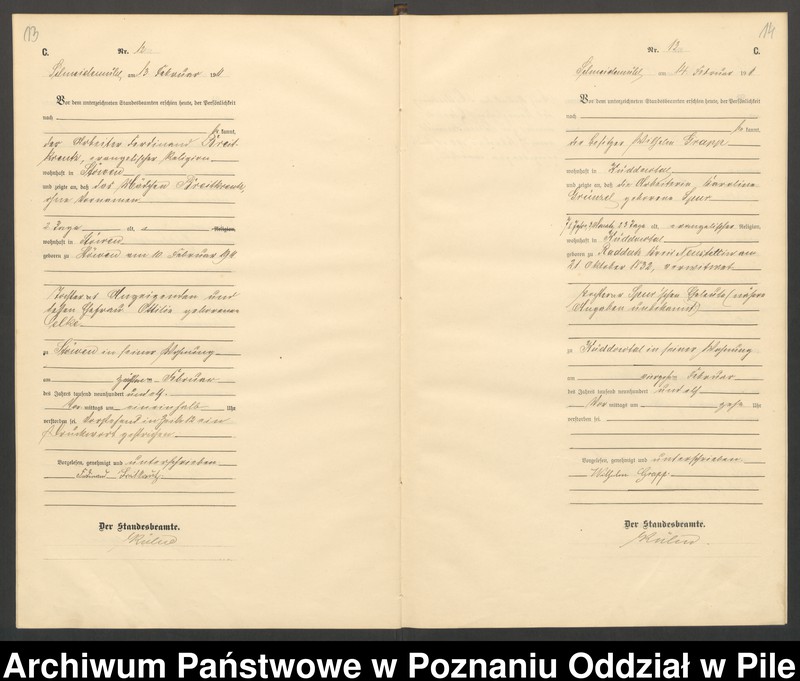 13
C.
Nr. 12
Schneidemühl, am 13. Februar 1911
Vor dem unterzeichneten Standesbeamten erschien heute, der Persönlichkeit
nach
kannt,
der Arbeiter Ferdinand Breit-
kreutz, evangelischer Religion
wohnhaft in Stöwen
und zeigte an, daß das Mädchen Breitkreutz,
ohne Vornamen
2 Tage alt, Religion,
wohnhaft in Stöwen
geboren zu Stöwen am 10. Februar 1911
Tochter des Anzeigenden und
dessen Ehefrau Ottilie geborenen
zu Stöwen in seiner Wohnung
am Februar
des Jahres tausend neunhundert und elf
Vormittags um ein einhalb Uhr
verstorben sei. Vorstehend
Druckwort gestrichen.
Vorgelesen, genehmigt und unterschrieben
Ferdinand Breitkreutz
Der Standesbeamte.
14
Nr. 13
C.
Schneidemühl, am 14. Februar 1911
Vor dem unterzeichneten Standesbeamten erschien heute, der Persönlichkeit
nach
kannt,
der Besitzer Wilhelm Grapp
wohnhaft in Küddowtal
und zeigte an, daß die Arbeiterin Karoline
geborene Spur
78 Jahre, 3 Monate, 23 Tage alt, evangelischer Religion,
wohnhaft in Küddowtal
geboren zu Raddatz Kreis Neustettin am
21. Oktober 1832, verwitwet
Tochter der Spur'schen Eheleute (nähere
Angaben unbekannt)
zu Küddowtal in seiner Wohnung
am vierzehn Februar
des Jahres tausend neunhundert und elf
Vormittags um Uhr
verstorben sei.
Vorgelesen, genehmigt und unterschrieben
Wilhelm Grapp
Der Standesbeamte.
Archiwum Państwowe w Poznaniu Oddział w Pile